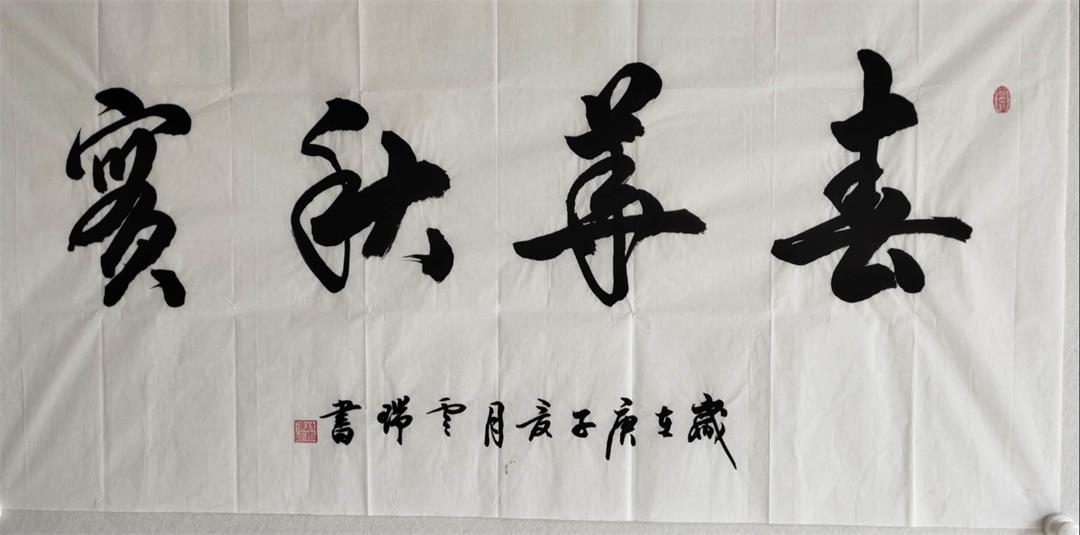 春華秋實
歲在庚子夏月雲瑞書